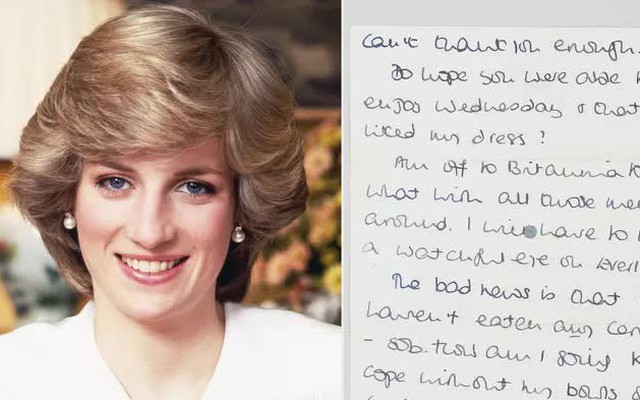 can't thank you enough.
Do hope you were able
enjoy Wednesday & that
liked my dress ?
Am off to Britannia
what with all those me
around. I will have to
a watchful eye on Ever
The bad news is that
haven't eaten any
- sob. How am I going
cope without my bowls